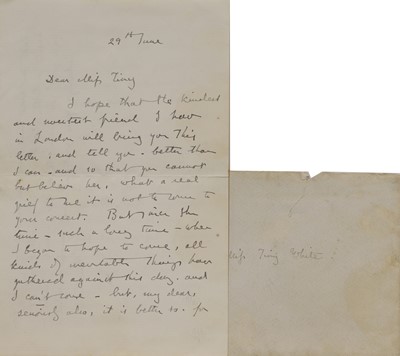 29th June
Dear Miss Tiny
I hope that the kindest
and sweetest friend I have
in London will bring you this
letter, and tell you - better than
I can - and so that you cannot
but believe her, what a real
grief to me it is not to come to
your concert. But since the
time - such a long time - when
I began to hope to come, all
kinds of inevitable things have
gathered against this day. and
I can't come - but, my dear,
seriously also, it is better so. for
Miss Tiny White